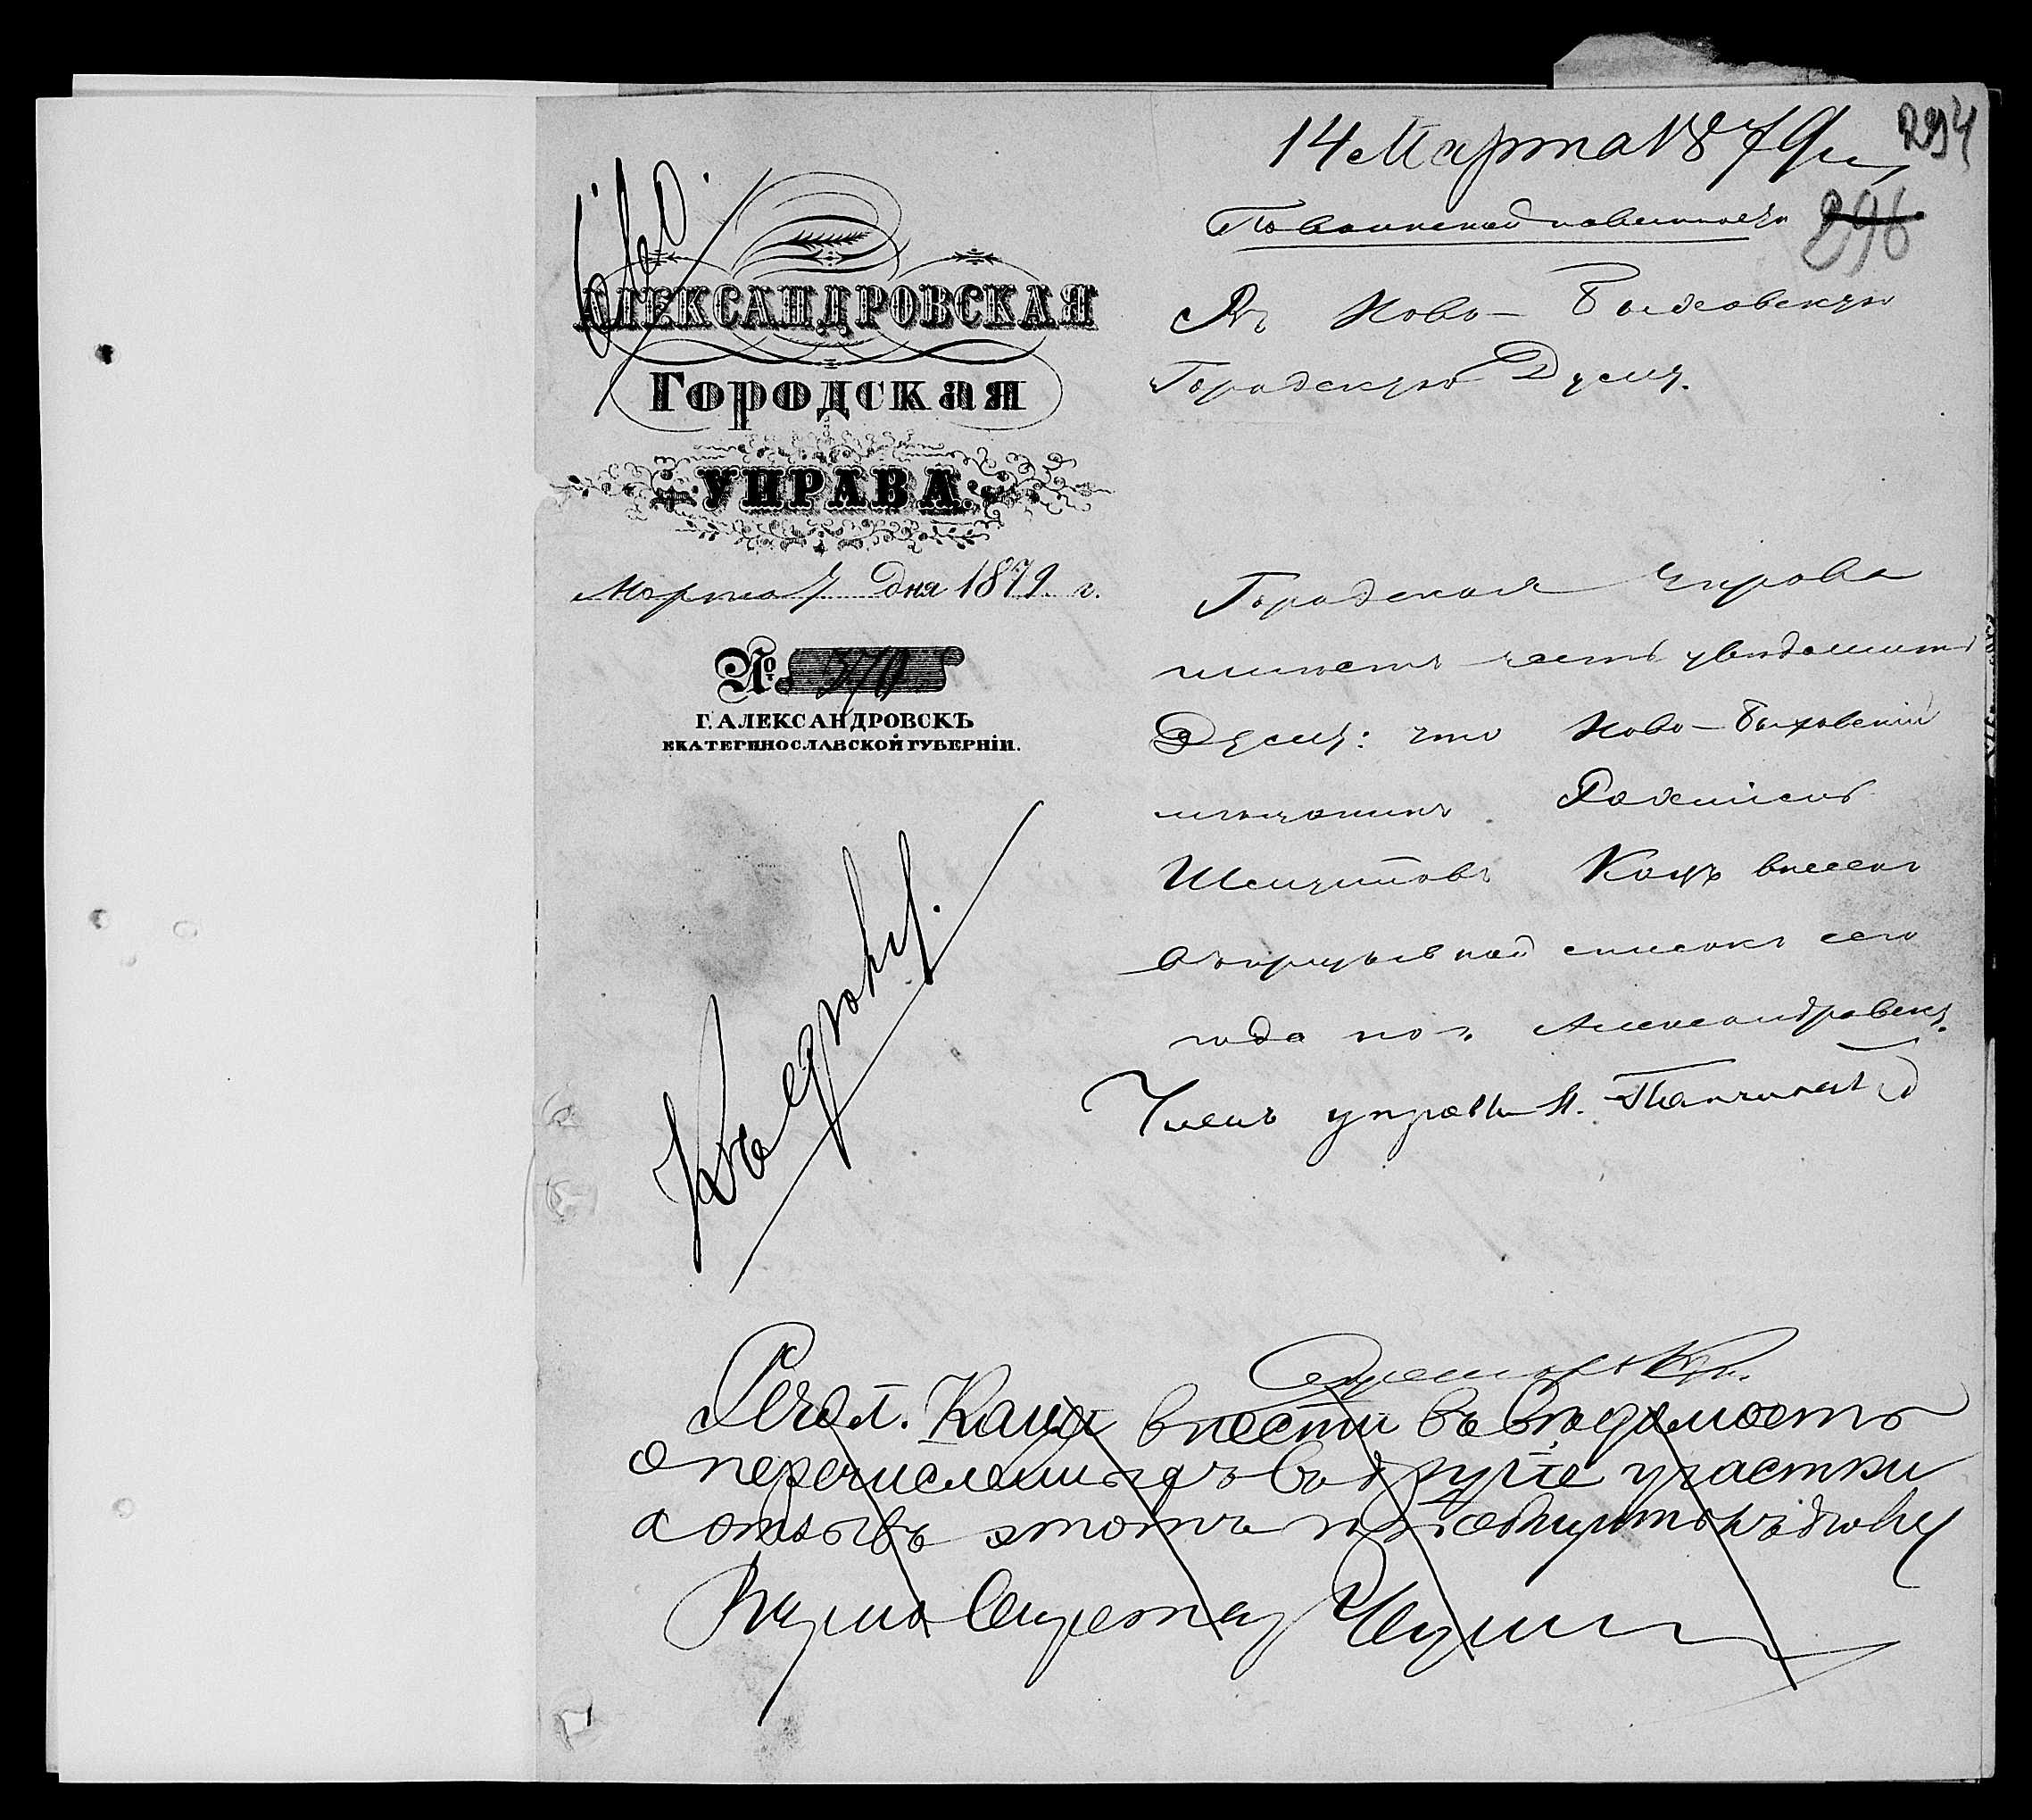 14 Марта 1879 г.
294
По воинской повинности
296
АЛЕКСАНДРОВСКАЯ
ГОРОДСКАЯ
УПРАВА.
Марта 7 дня 1879 г.
№ 270
Г. АЛЕКСАНДРОВСКЪ
ЕКАТЕРИНОСЛАВСКОЙ ГУБЕРНІИ.
Въ Ново-Быховскую
Городскую Думу.
Городская Управа
имѣетъ честь увѣдомить
Думу: что Ново-Быховскій
мѣщанинъ
Кацъ внесенъ
въ призывной списокъ сего
года по г. Александровску.
Членъ управы
Къ дѣлу.
Секретарь
Каца внести въ вѣдомость
о перечисленныхъ въ другіе участки
а отзывъ этотъ къ дѣлу
Секретарь